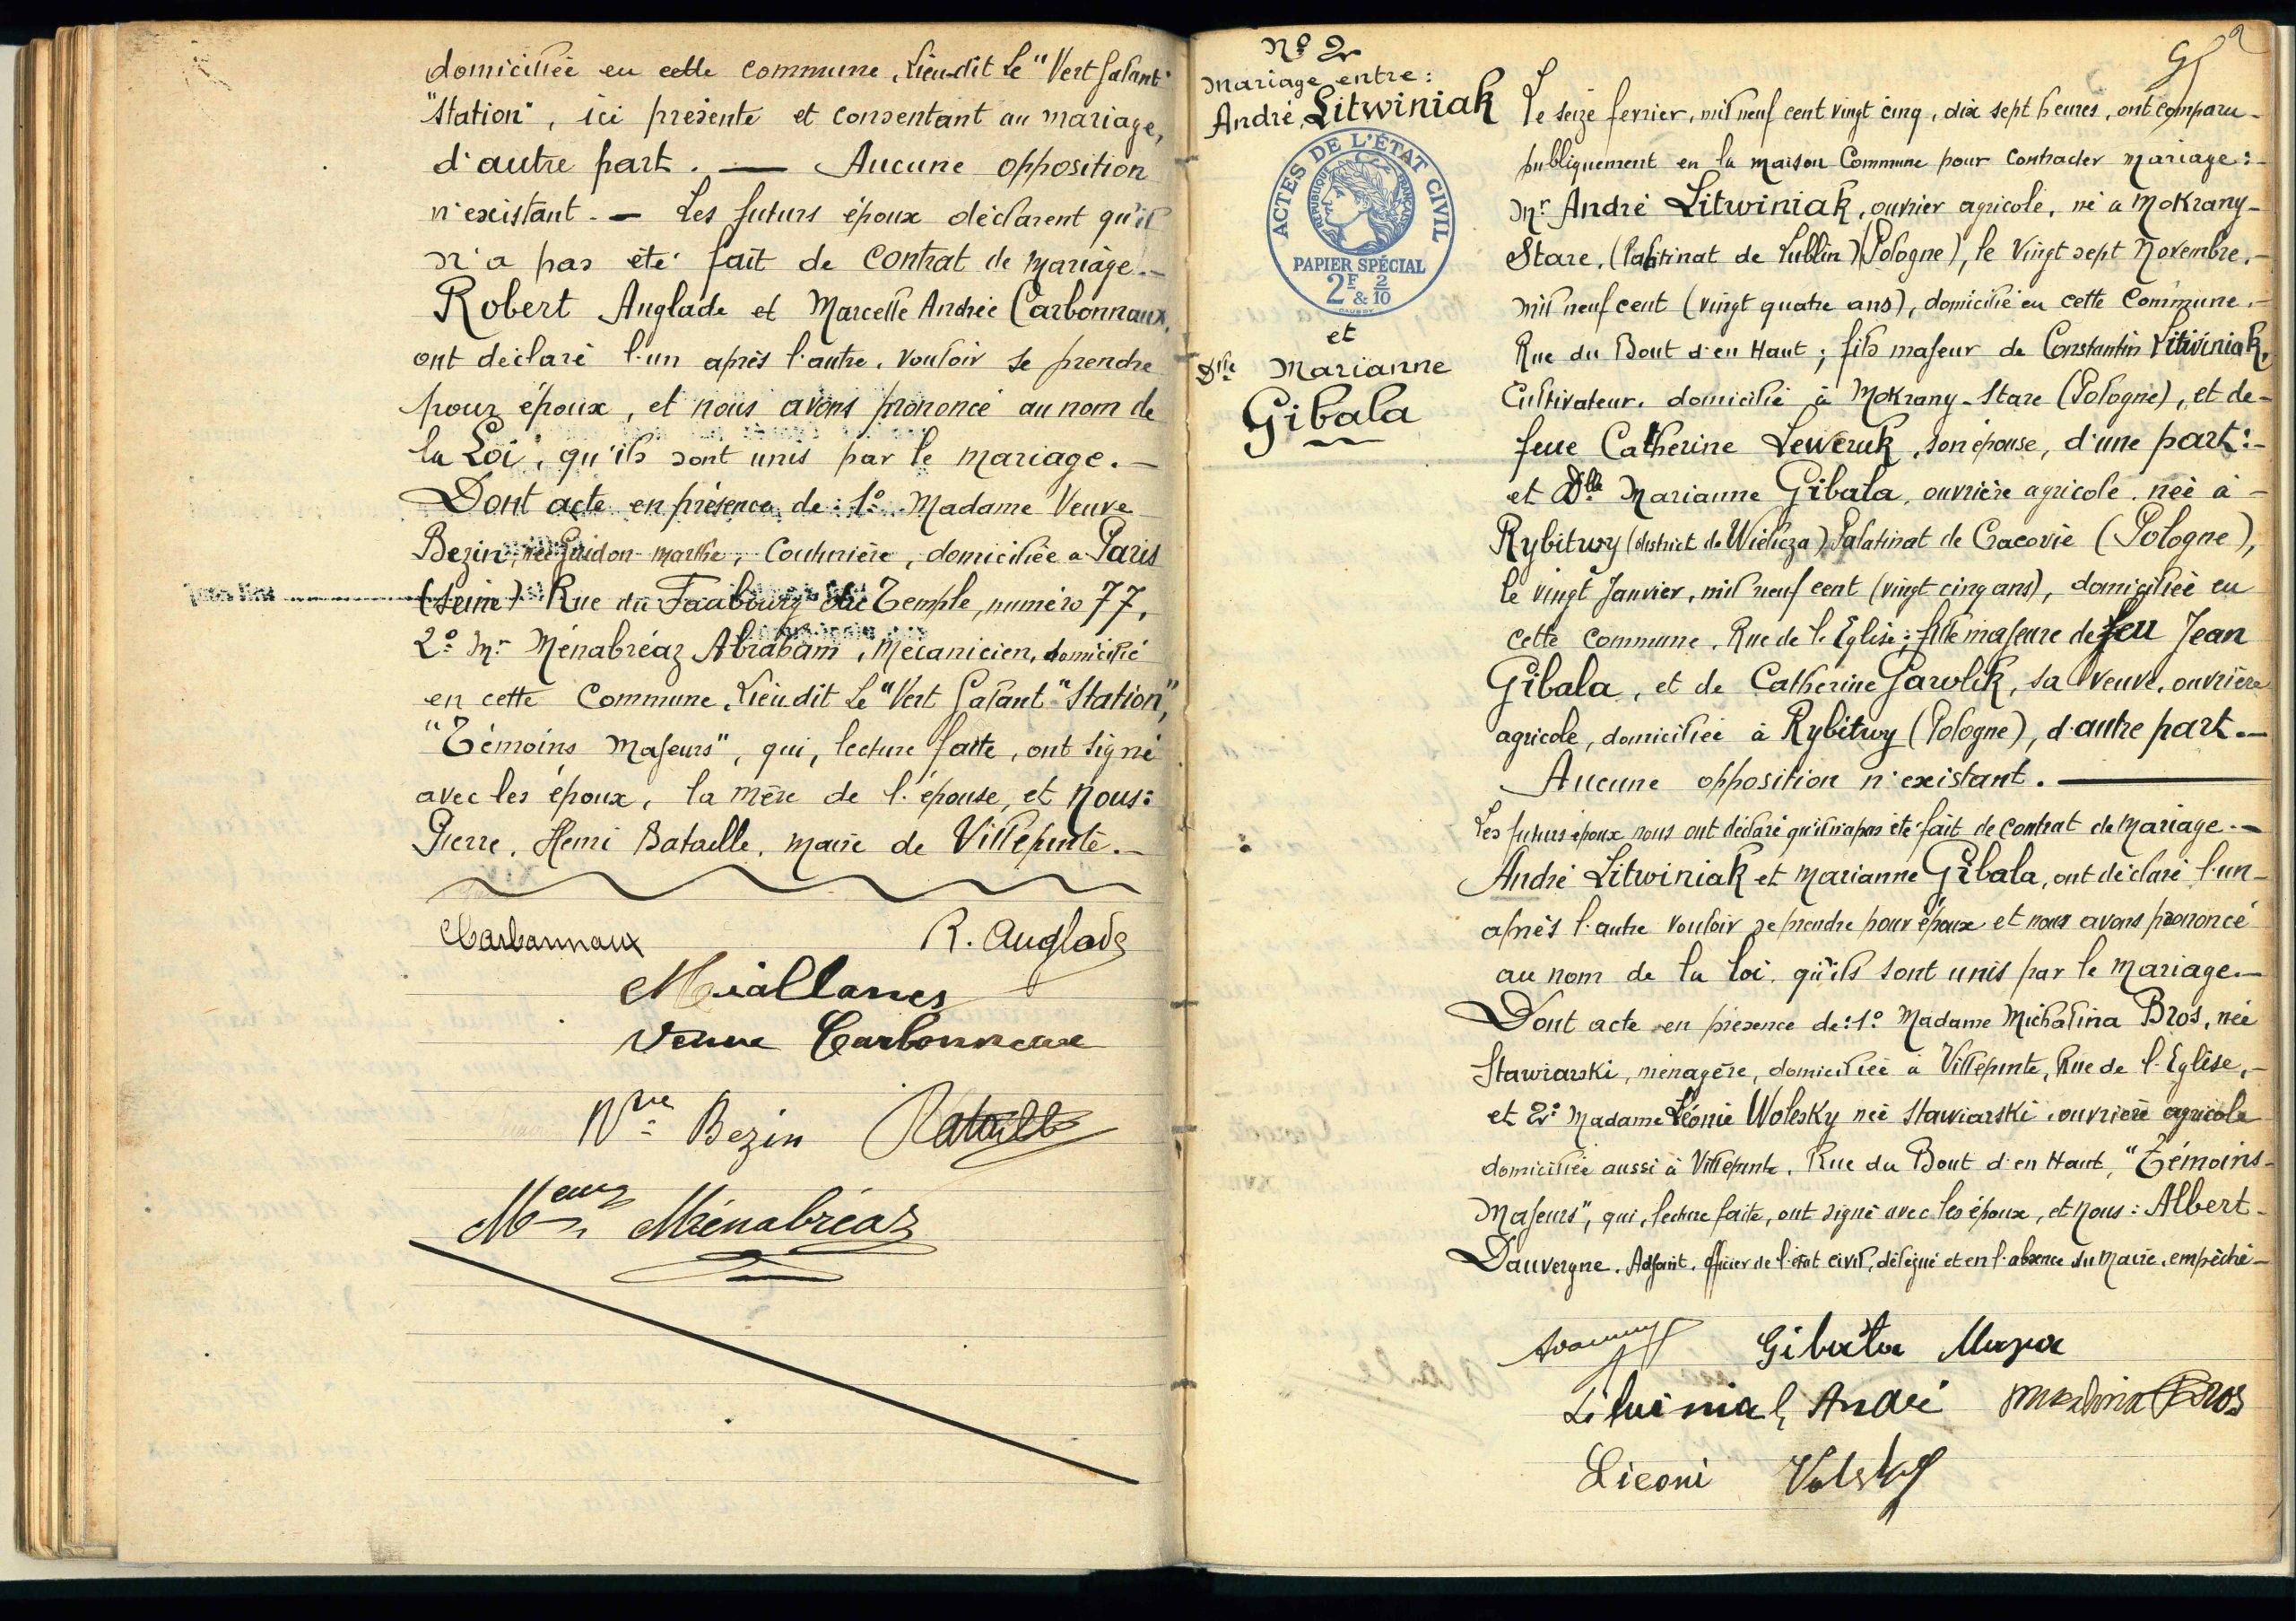 domiciliée en cette commune, Lieu-dit Le "Vert Galant"
"Station", ici présente et consentant au mariage,
d'autre part. — Aucune opposition
n'existant. — Les futurs époux déclarent qu'il
n'a pas été fait de contrat de mariage. —
Robert Anglade et Marcelle Andrée Carbonnaux,
ont déclaré l'un après l'autre, vouloir se prendre
pour époux, et nous avons prononcé au nom de
la Loi, qu'ils sont unis par le mariage. —
Dont acte en présence de : 1º Madame Veuve
Bezin, née Guidon Marthe, Couturière, domiciliée a Paris
(Seine) Rue du Faubourg du Temple, numéro 77,
2º Mr Ménabréaz Abraham, Mécanicien, domicilié
en cette Commune, Lieu dit Le "Vert Galant" "Station",
"Témoins Majeurs", qui, lecture faite, ont signé
avec les époux, la mère de l'épouse, et Nous :
Pierre, Henri Bataille, maire de Villepinte. —
Carbonnaux R. Anglade
Veuve Carbonnaux
Vve Bezin Bataille
Ménabréaz
Nº 2
Mariage entre :
André Litwiniak
ACTES DE L'ÉTAT CIVIL
RÉPUBLIQUE FRANÇAISE
PAPIER SPÉCIAL
2F & 2/10
et
Dlle Marianne
Gibala
Le seize fevrier, mil neuf cent vingt cinq, dix sept heures, ont comparu
publiquement en la maison Commune pour contracter mariage : -
Mr André Litwiniak, ouvrier agricole, né a Mokrany-
Stare, (Palatinat de Lublin) (Pologne), le vingt sept Novembre, -
mil neuf cent (vingt quatre ans), domicilié en cette Commune. -
Rue du Bout d'en Haut ; fils majeur de Constantin Litwiniak,
Cultivateur, domicilié à Mokrany-Stare (Pologne), et de -
feue Catherine Lewcruk, son épouse, d'une part : -
et Dlle Marianne Gibala, ouvrière agricole, née à -
Rybitwy (district de Wielicza) Palatinat de Cracovie (Pologne),
le vingt Janvier, mil neuf cent (vingt cinq ans), domiciliée en
cette commune, Rue de l'Eglise ; fille majeure de feu Jean
Gibala, et de Catherine Gawlik, sa veuve, ouvrière
agricole, domiciliée à Rybitwy (Pologne), d'autre part. —
Aucune opposition n'existant. —
Les futurs époux nous ont déclaré qu'il n'a pas été fait de contrat de mariage. —
André Litwiniak et Marianne Gibala, ont déclaré l'un -
après l'autre vouloir se prendre pour époux et nous avons prononcé
au nom de la loi, qu'ils sont unis par le mariage. —
Dont acte en présence de : 1º Madame Michalina Bros, née
Stawiarski, ménagère, domiciliée à Villepinte, Rue de l'Eglise, -
et 2º Madame Léonie Wolesky née Stawiarski, ouvrière agricole
domiciliée aussi à Villepinte, Rue du Bout d'en Haut, "Témoins -
Majeurs", qui, lecture faite, ont signé avec les époux, et Nous : Albert -
Dauvergne, Adjoint, officier de l'état civil, délégué et en l'absence du Maire, empêché -
Gibala
Litwiniak André Bros
Lieoni Volsky